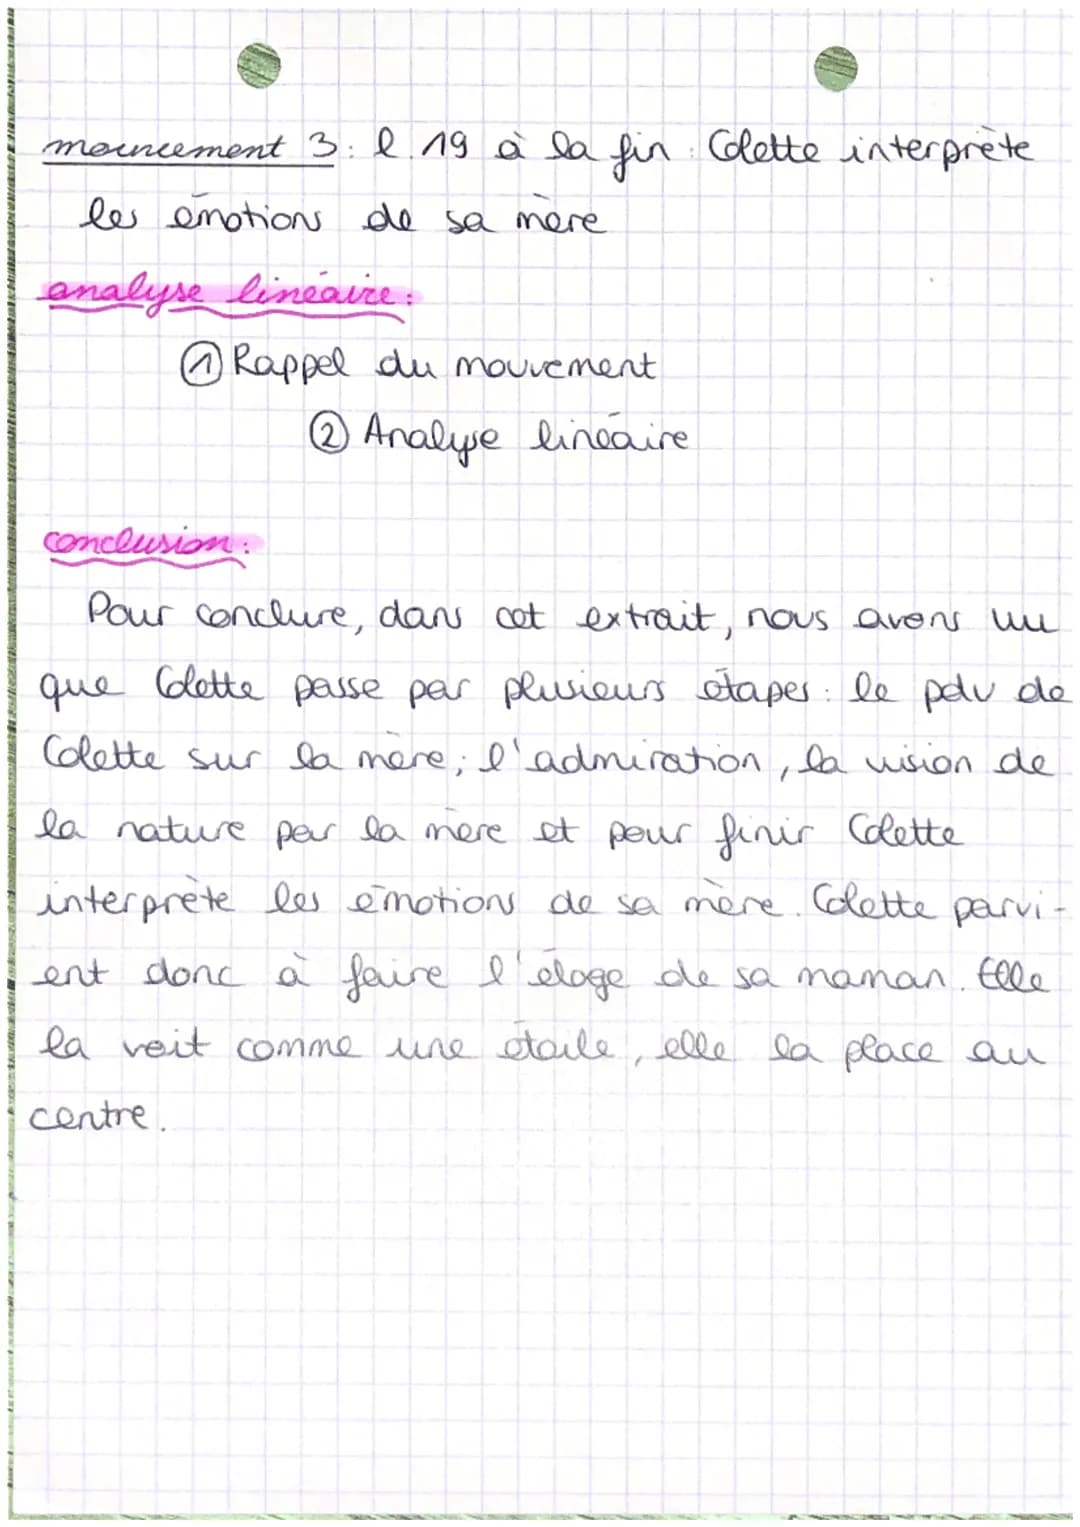 mouvement 3: l.19 à la fin : Colette interprète
les émotions de sa mère
analyse linéaire:
① Rappel du mouvement
② Analyse linéaire
conclusion:
Pour conclure, dans cet extrait, nous avons vu
que Colette passe par plusieurs étapes: le pdv de
Colette sur la mère; l'admiration, la vision de
la nature par la mère et pour finir Colette
interprète les émotions de sa mère. Colette parvi-
ent donc à faire l'éloge de sa maman. Elle
la voit comme une étoile, elle la place au
centre.